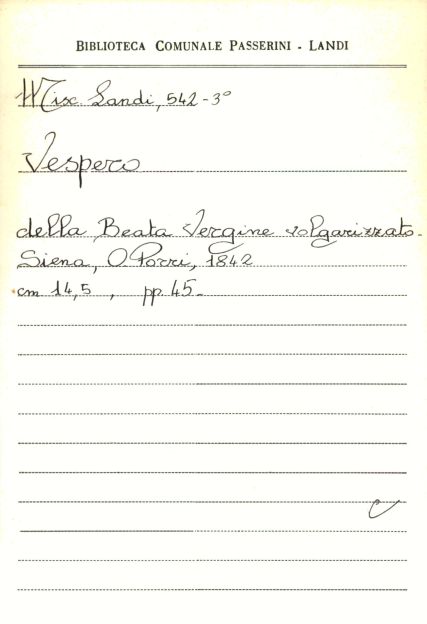 BIBLIOTECA COMUNALE PASSERINI - LANDI
Misc. Landi, 542-3°
Vespero
della Beata Vergine volgarizzato.
Siena, O. Porri, 1842
cm 14,5 , pp. 45.
C